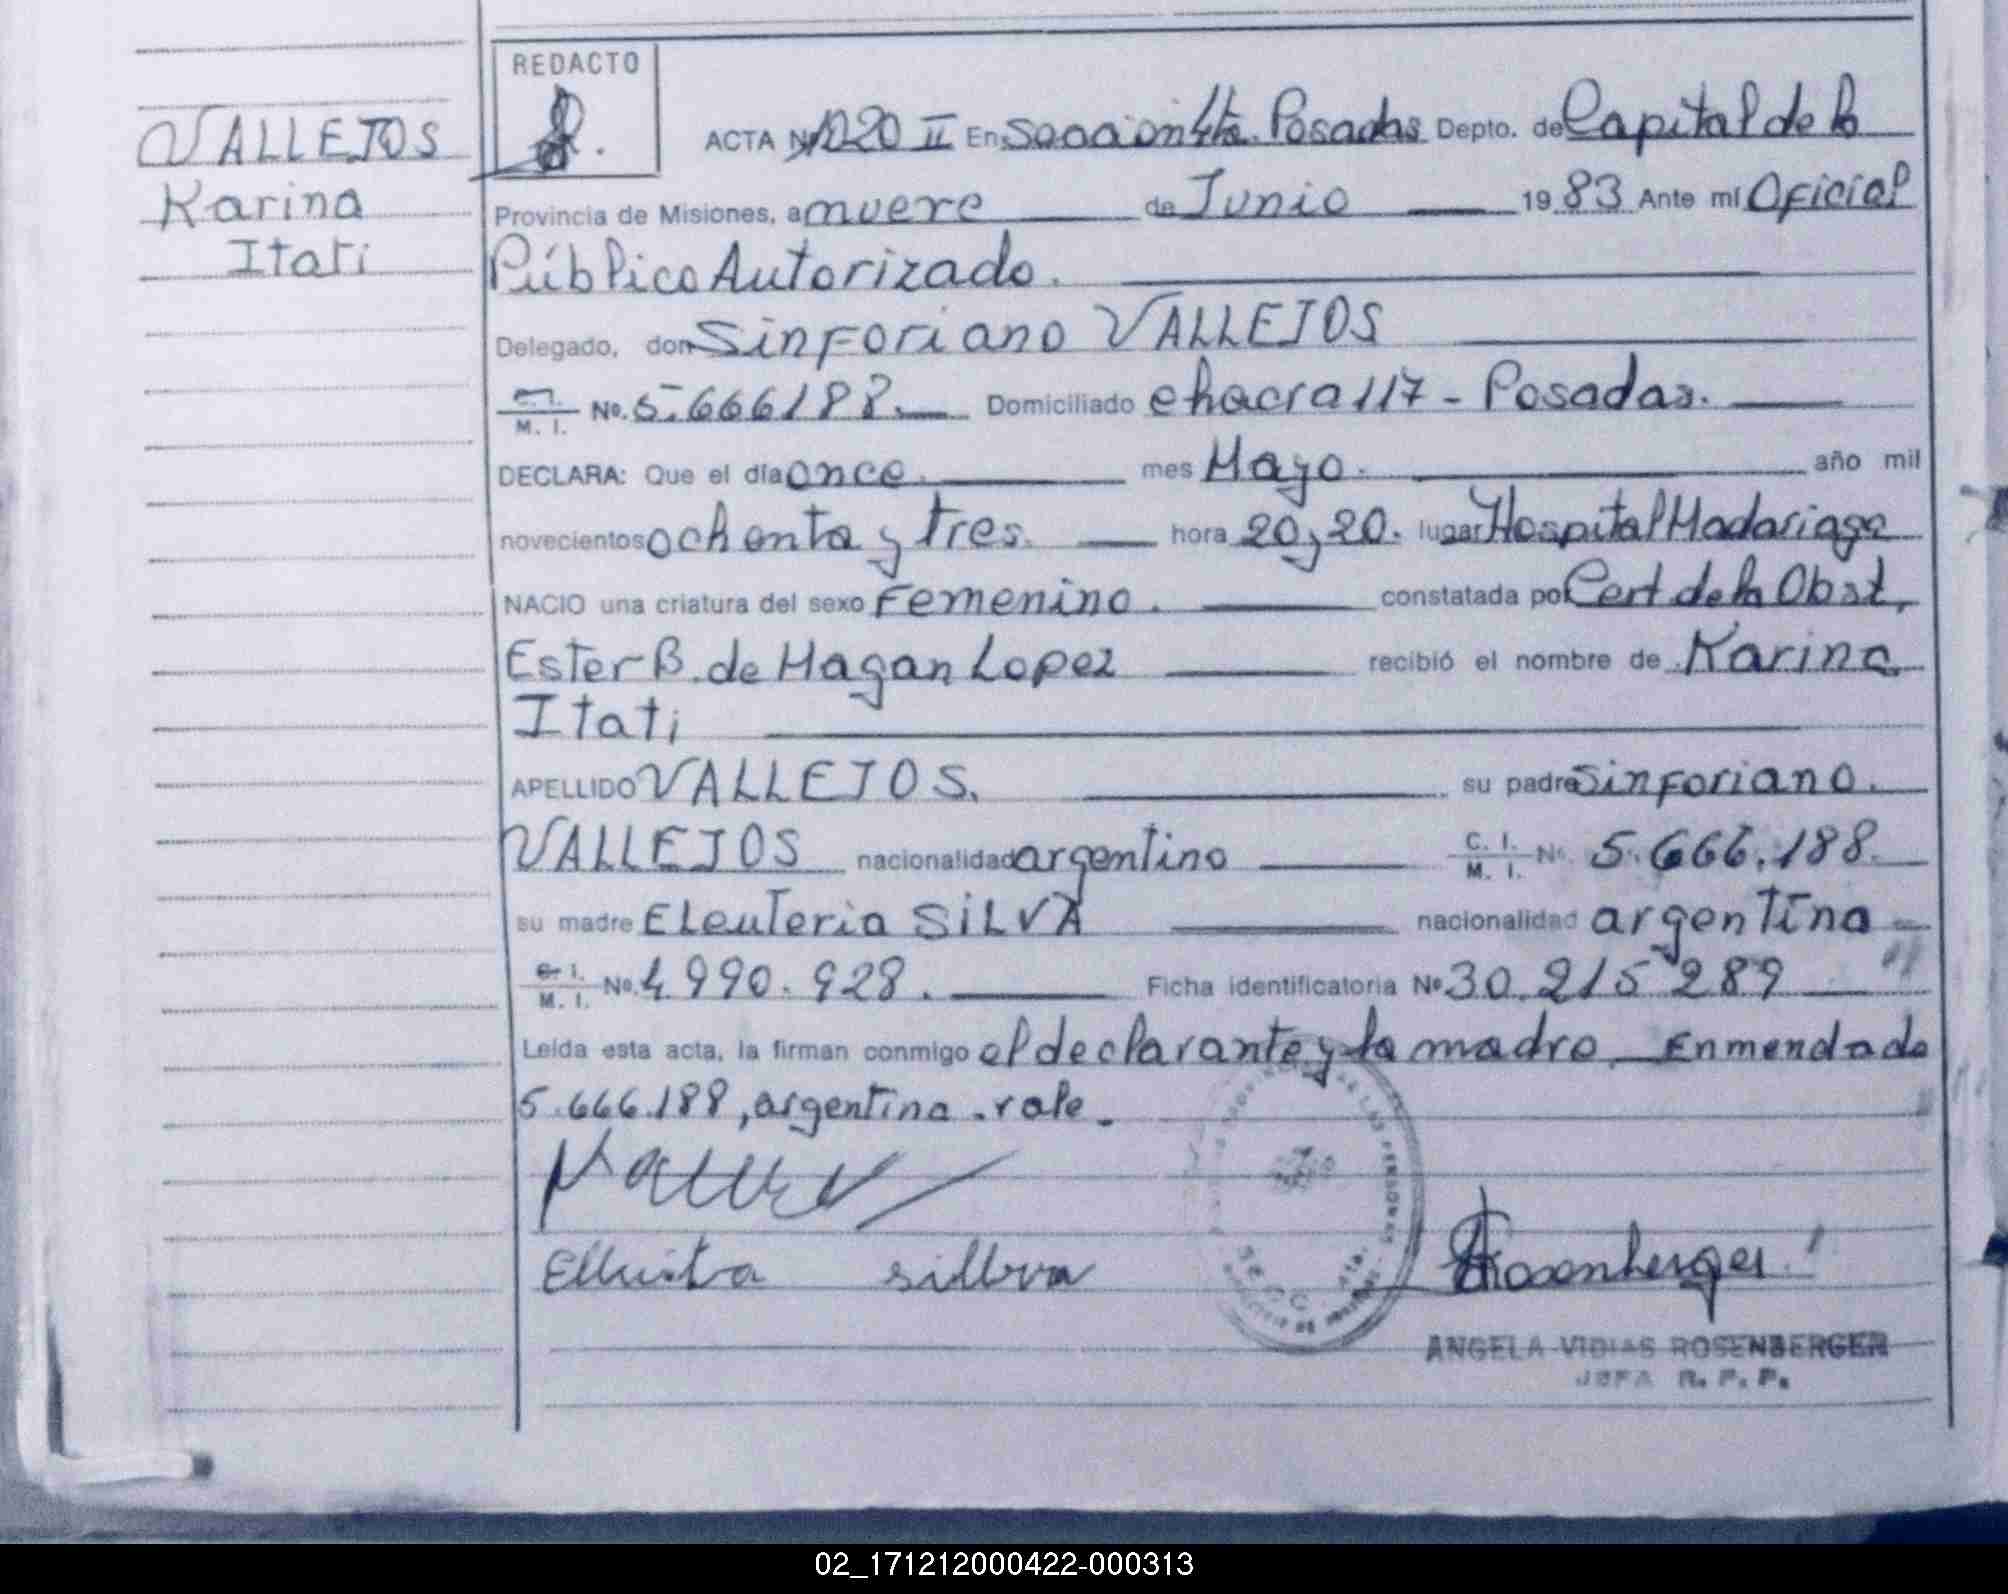 VALLEJOS
Karina
Itati
REDACTO
ACTA Nº 1020 II En Sección 4ta. Posadas Depto. de Capital de la
Provincia de Misiones, a nueve de Junio 1983 Ante mí Oficial
Público Autorizado.
Delegado, don Sinforiano VALLEJOS
C. I. M. I. No. 5.666188. Domiciliado chacra 117 - Posadas.
DECLARA: Que el día once. mes Mayo. año mil
novecientos ochenta y tres. hora 20,20. lugar Hospital Madariaga
NACIO una criatura del sexo Femenino. constatada por Cert de la Obst,
Ester B. de Magan Lopez recibió el nombre de Karina
Itati
APELLIDO VALLEJOS. su padre Sinforiano.
VALLEJOS nacionalidad argentino C. I. M. I. No. 5.666.188.
su madre Eleuteria SILVA nacionalidad argentina
C. I. M. I. No. 4.990.928. Ficha identificatoria Nº 30.215 289
Leída esta acta, la firman conmigo el declarante y la madre. Enmendado
5.666.188, argentina. vale.
sillva
Rosenberger
ANGELA VIDIAS ROSENBERGER
JEFA R. P. P.
02_171212000422-000313